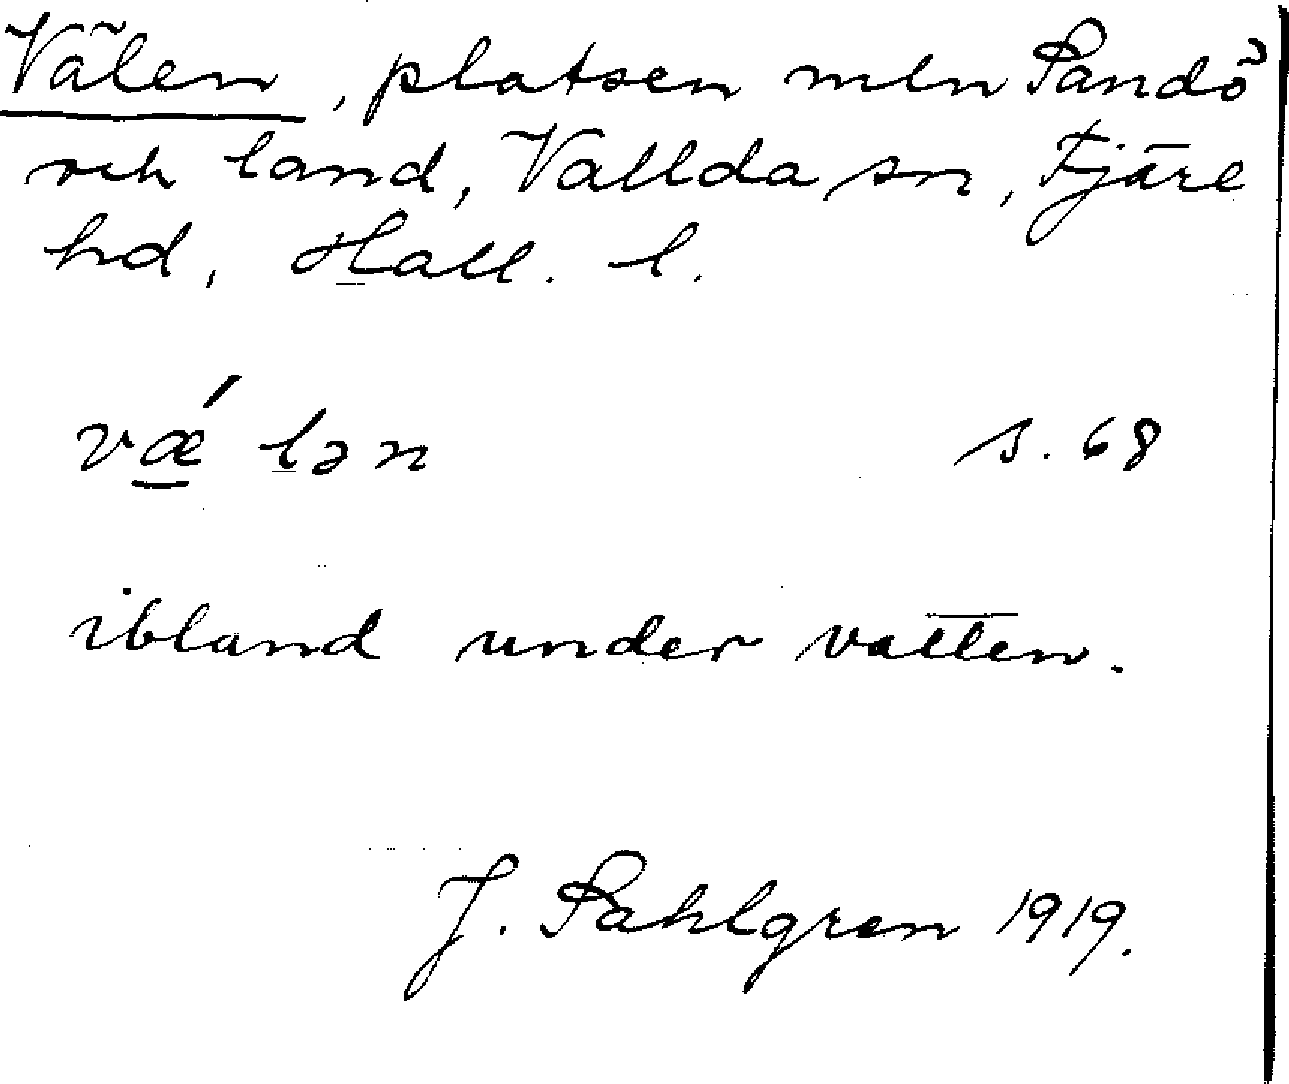 Välen, platsen mln Sandö
och land, Vallda sn, Fjäre
hd, Hall. l.
vǽ lən s. 68
ibland under vatten.
J. Sahlgren 1919.